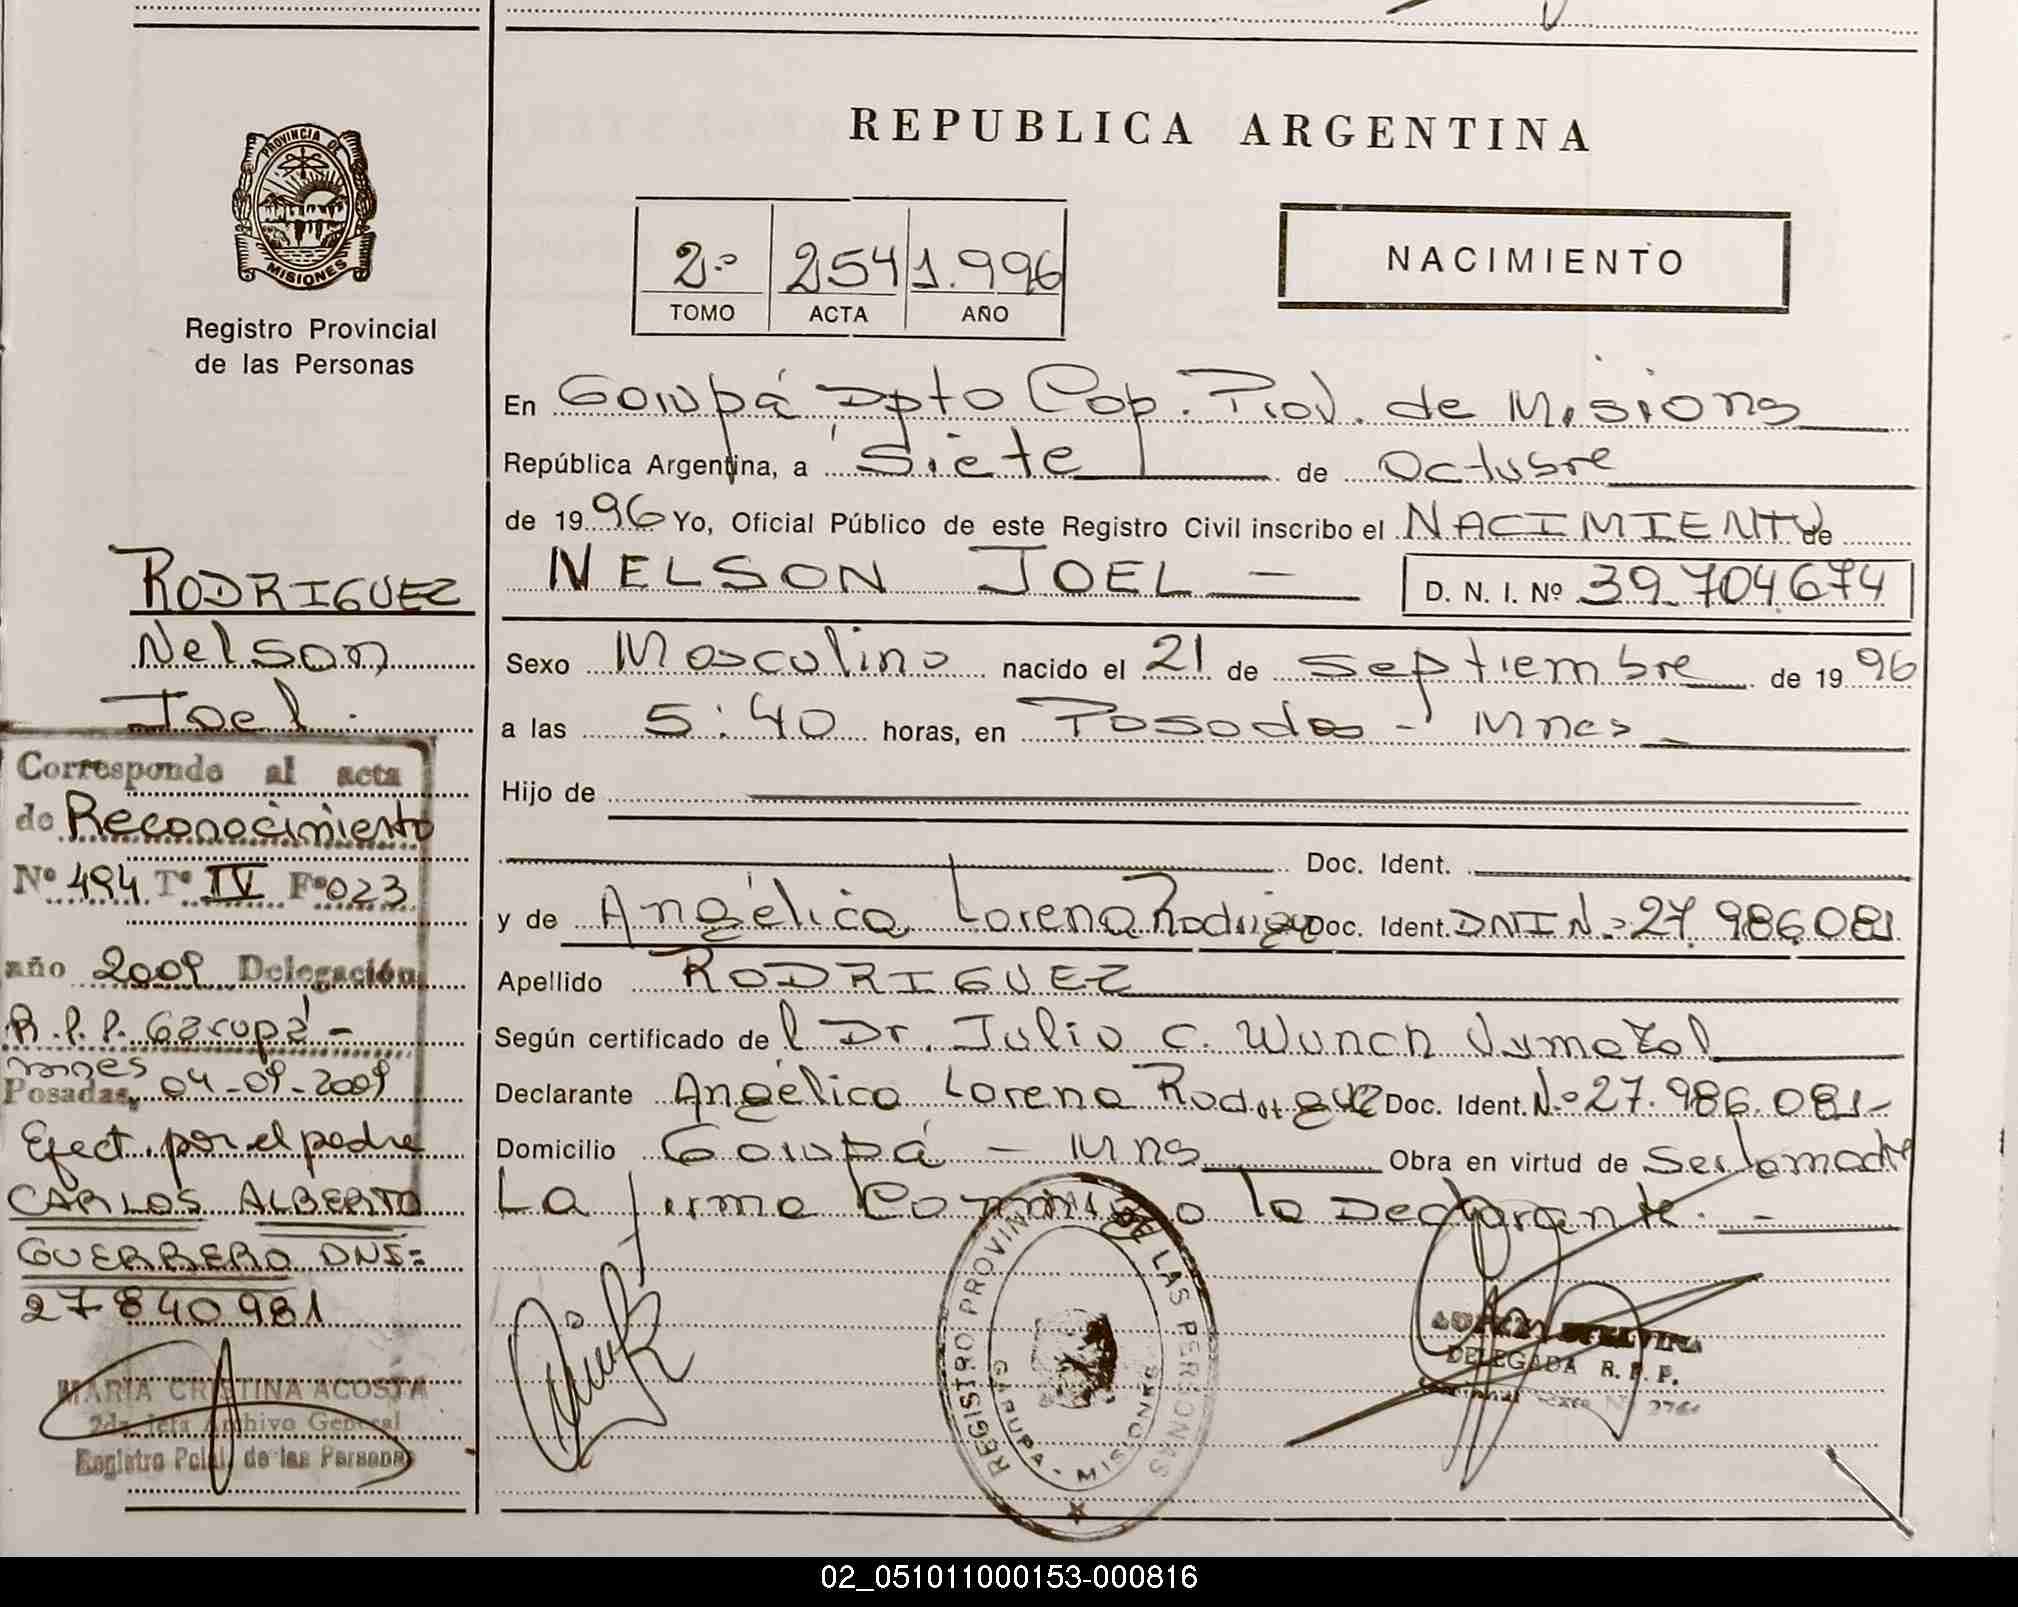 REPUBLICA ARGENTINA
PROVINCIA DE
MISIONES
Registro Provincial
de las Personas
2.º 254 1.996
TOMO ACTA AÑO
NACIMIENTO
En Garupá Dpto Cap. Prov. de Misiones
República Argentina, a Siete de Octubre
de 1996 Yo, Oficial Público de este Registro Civil inscribo el NACIMIENTO de
NELSON JOEL — D. N. I. Nº 39.704.674
Sexo Masculino nacido el 21 de Septiembre de 1996
a las 5:40 horas, en Posadas - Mnes
Hijo de
Doc. Ident.
y de Angélica Lorena Rodriguez Doc. Ident. DNI Nº 27.986.081
Apellido RODRIGUEZ
Según certificado del Dr. Julio C. Wunch
Declarante Angélica Lorena Rodriguez Doc. Ident. Nº 27.986.081-
Domicilio Garupá - Mns Obra en virtud de Ser la madre
La firma Conmigo la Declarante. -
REGISTRO PROVINCIAL DE LAS PERSONAS
GARUPA - MISIONES
DELEGADA R. P. P.
RODRIGUEZ
Nelson
Joel.
Corresponde al acta
de Reconocimiento
Nº 494 Tº IV Fº 023
año 2009 Delegación
R.P.P. Garupá -
mnes
Posadas, 04-09-2009
Efect. por el padre
CARLOS ALBERTO
GUERRERO DNI:
27840981
MARIA CRISTINA ACOSTA
2da Jefa Archivo General
Registro Pcial. de las Personas
02_051011000153-000816